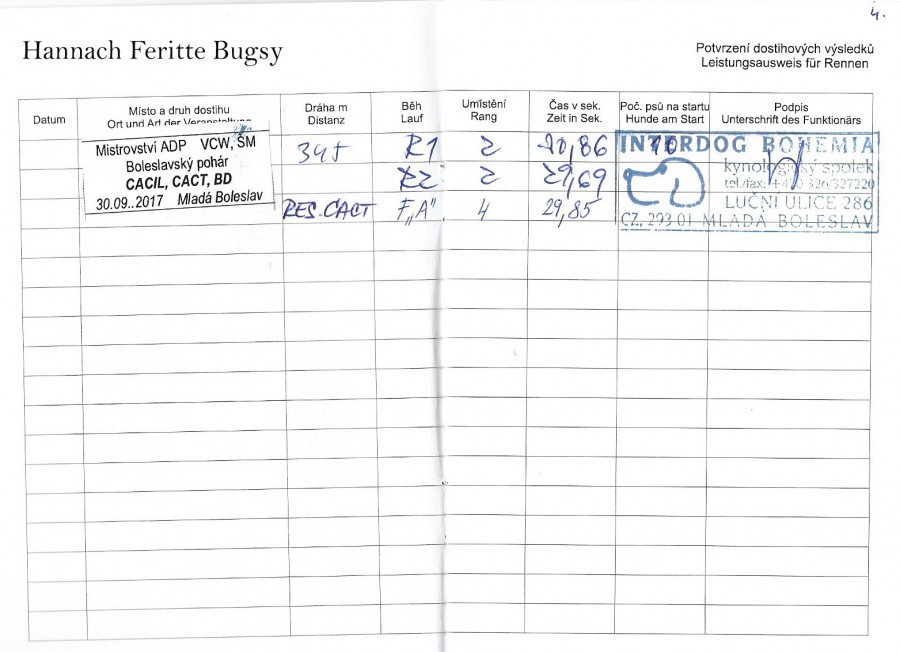 4.
Hannach Feritte Bugsy
Potvrzení dostihových výsledků
Leistungsausweis für Rennen
Datum
Místo a druh dostihu
Ort und Art der Veranstaltung
Dráha m
Distanz
Běh
Lauf
Umístění
Rang
Čas v sek.
Zeit in Sek.
Poč. psů na startu
Hunde am Start
Podpis
Unterschrift des Funktionärs
Mistrovství ADP VCW, SM
Boleslavský pohár
CACIL, CACT, BD
30.09..2017 Mladá Boleslav
345 R1 2 30,86
R2 2 29,69
RES. CACT F„A" 4 29,85
INTERDOG BOHEMIA
kynologický spolek
tel./fax: +420 326/327220
LUČNÍ ULICE 286
CZ, 293 01 MLADÁ BOLESLAV